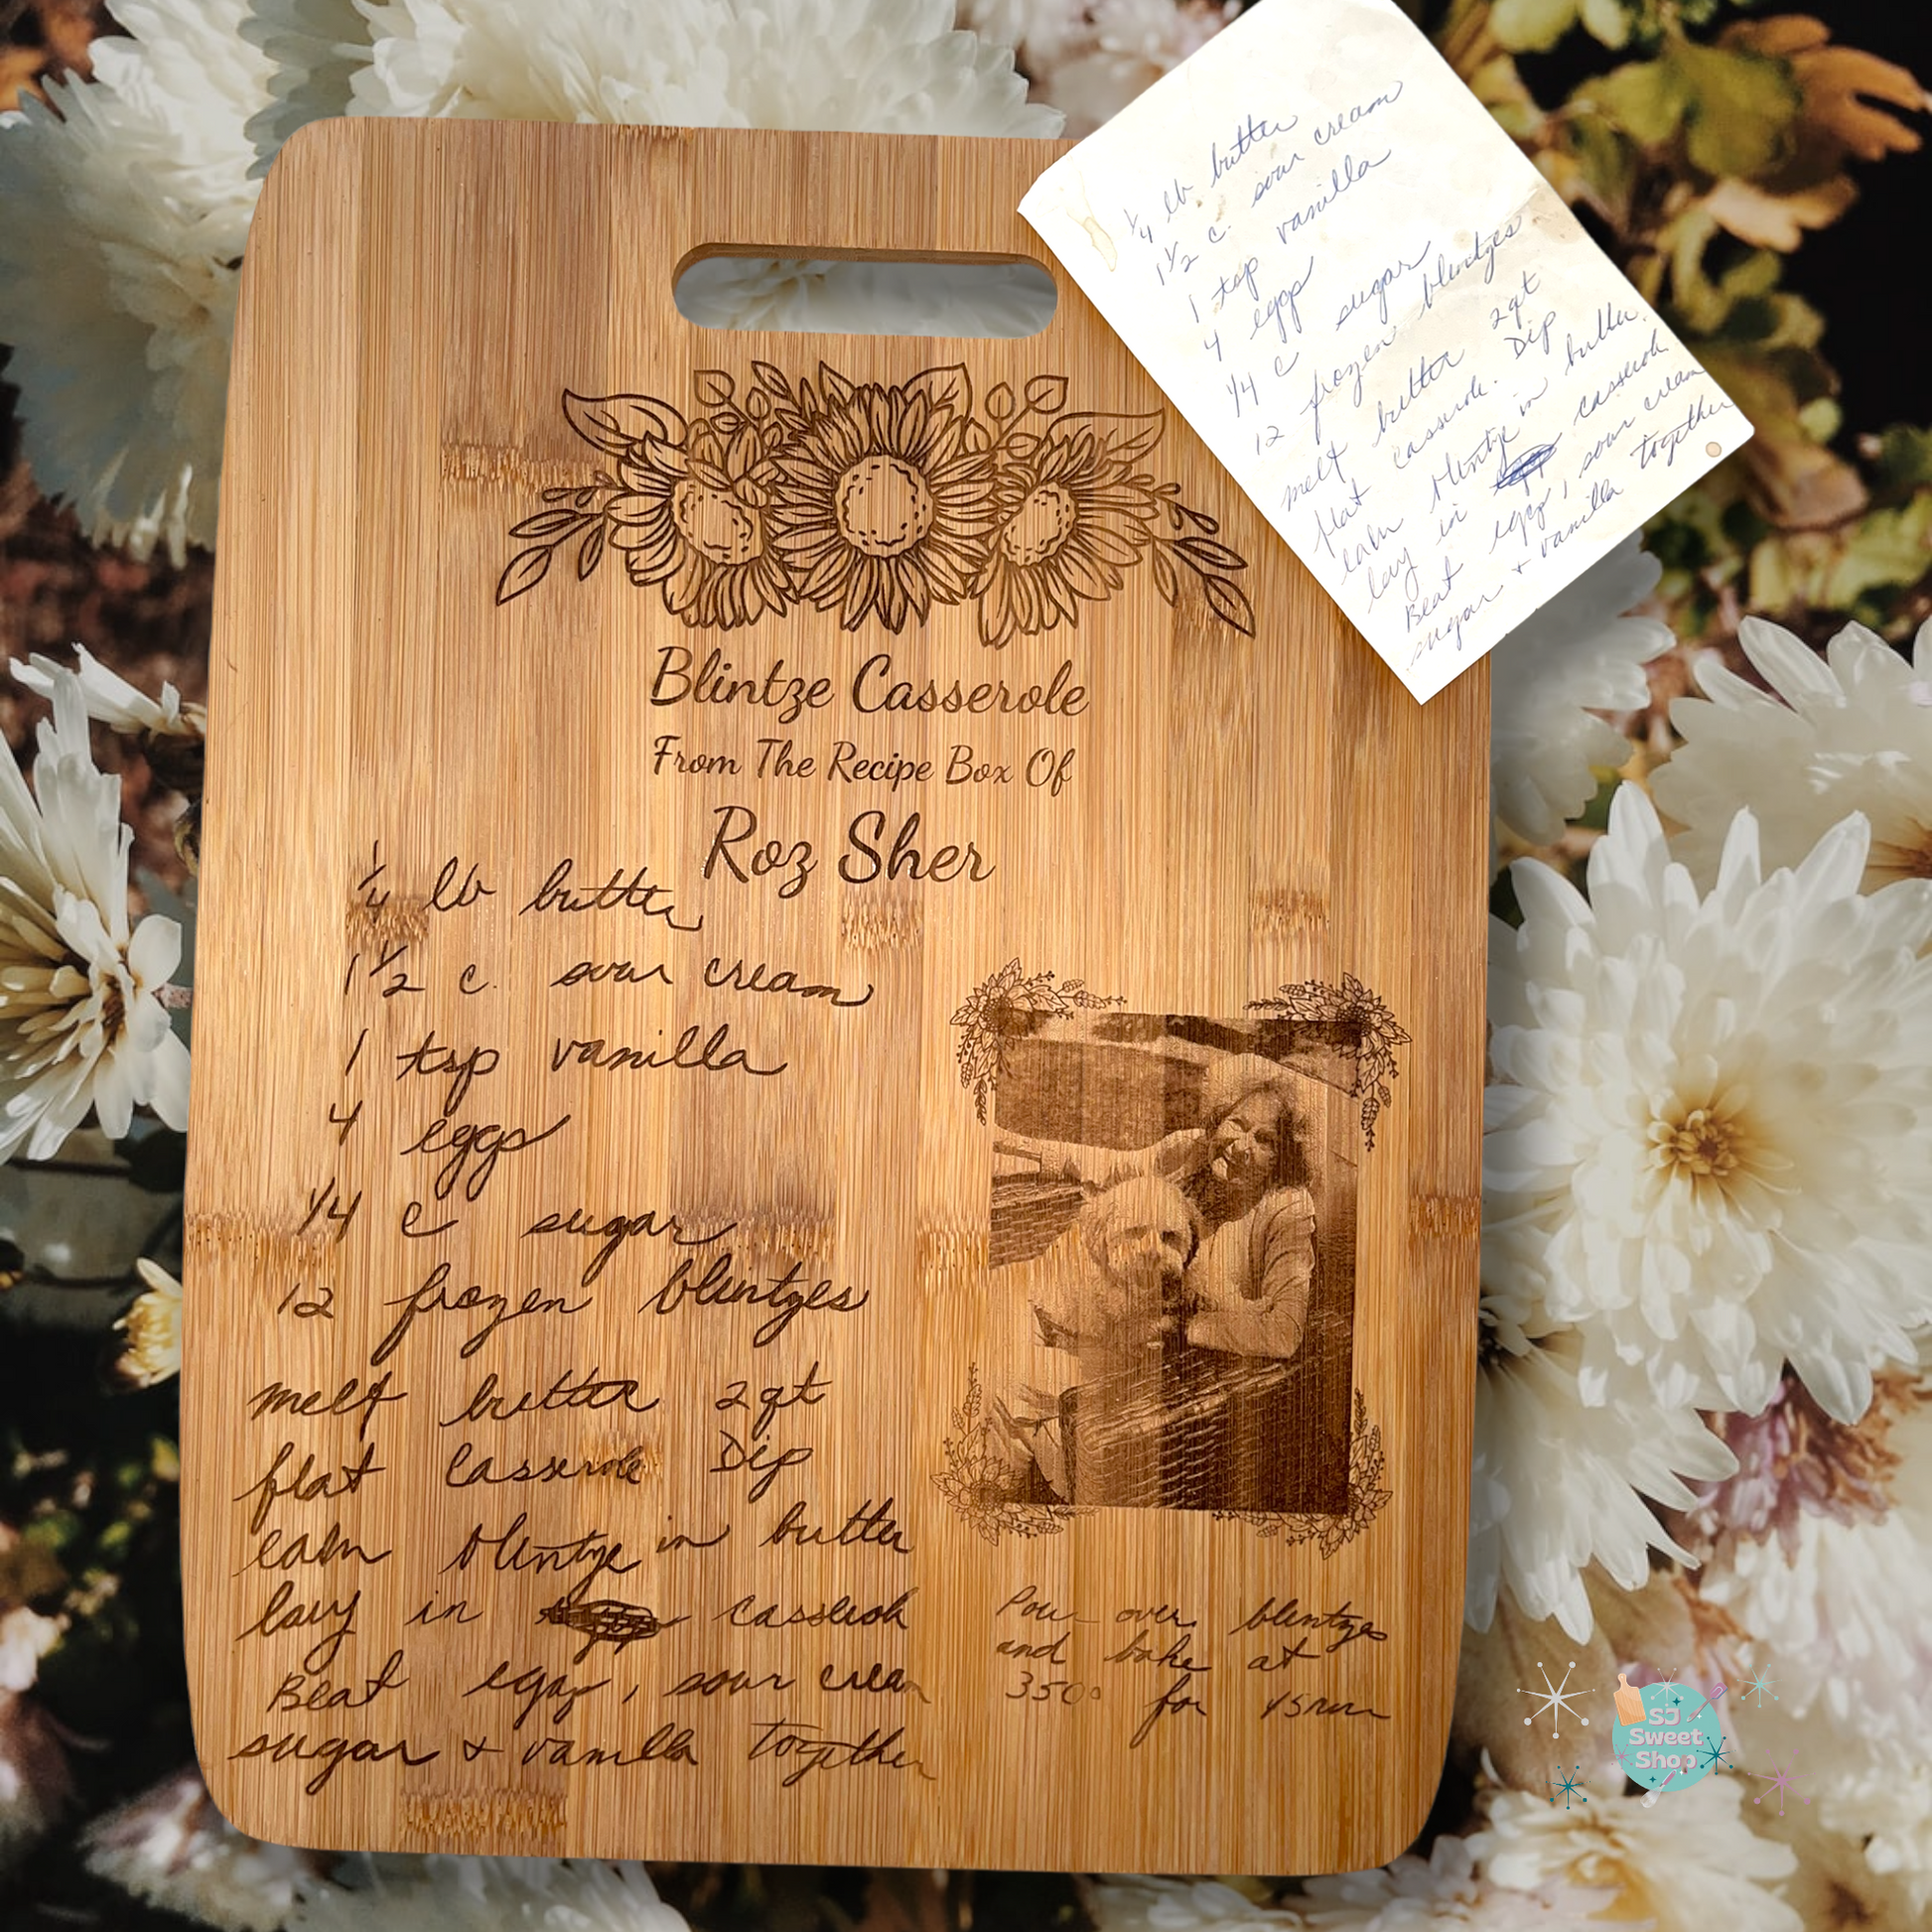 1/4 lb butter
1 1/2 c. sour cream
1 tsp vanilla
4 eggs
1/4 c sugar
12 frozen blintzes
melt butter 2qt
flat casserole. Dip
each blintze in butter
lay in casserole
Beat eggs, sour cream
sugar + vanilla together
Blintze Casserole
From The Recipe Box Of
Roz Sher
1/4 lb butter
1 1/2 c. sour cream
1 tsp vanilla
4 eggs
1/4 c sugar
12 frozen blintzes
melt butter 2qt
flat casserole Dip
each blintze in butter
lay in casserole
Beat eggs, sour cream
sugar + vanilla together
Pour over blintzes
and bake at
350° for 45 min
SJ
Sweet
Shop